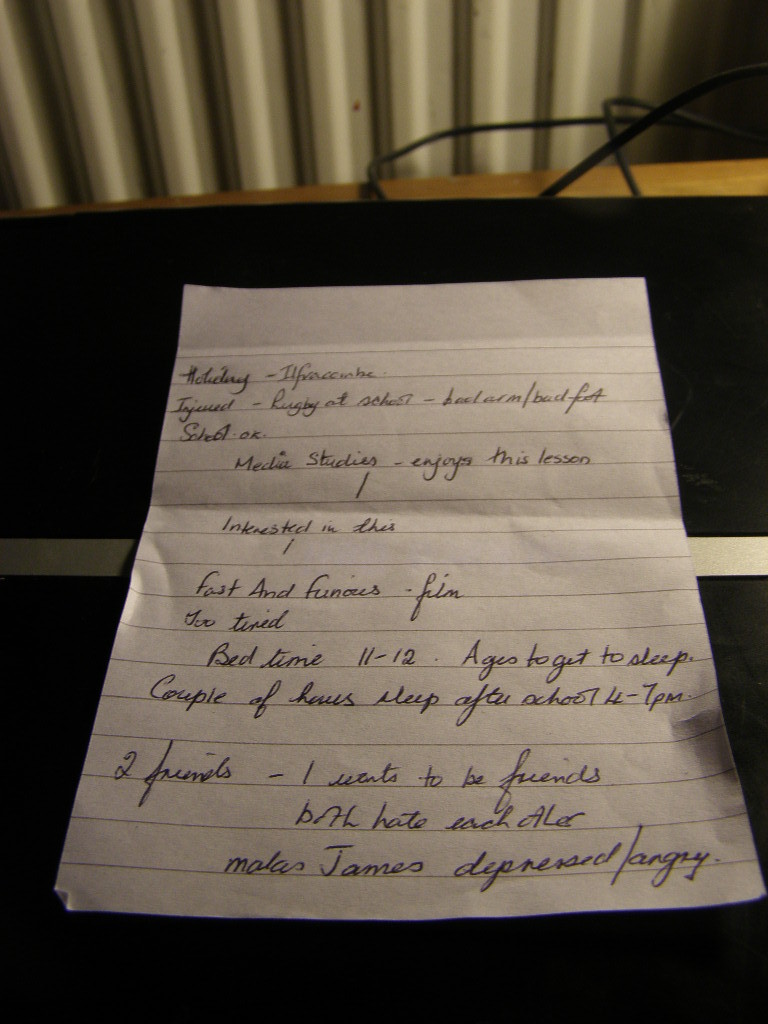 Holiday - Ilfracombe.
Injured - Rugby at school - bad arm/bad foot
School ok.
Media Studies - enjoys this lesson
Interested in this
Fast And Furious - film
Too tired
Bed time 11-12. Ages to get to sleep.
Couple of hours sleep after school 4-7pm.
2 friends - 1 wants to be friends
both hate each other
makes James depressed/angry.